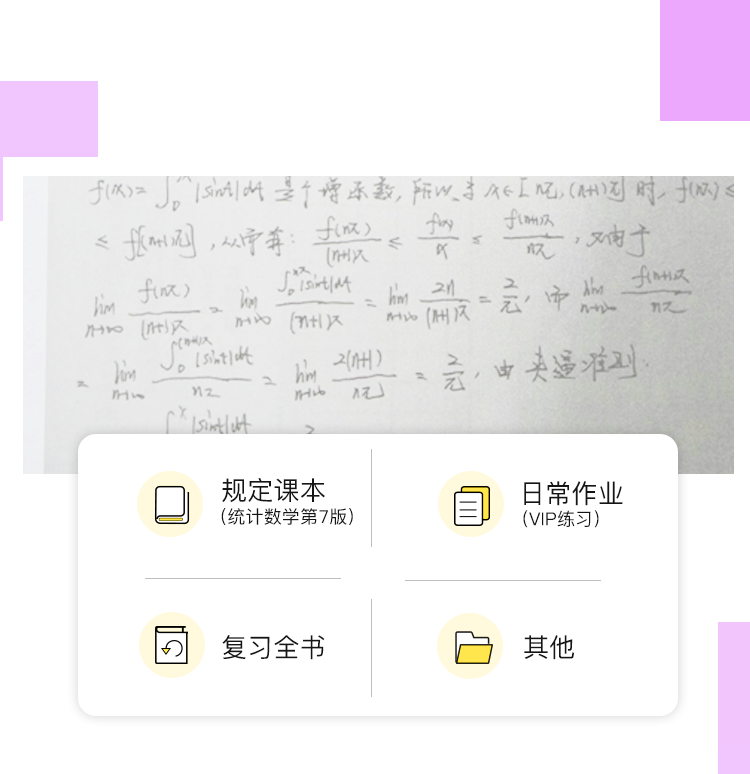 f(x)=∫₀ˣ|sint|dt 是个增函数, 所以, 当 x∈[nπ,(n+1)π] 时, f(nπ)≤
≤ f[(n+1)π], 从而有: f(nπ)/(n+1)π ≤ f(x)/x ≤ f(n+1)π/nπ, 又由于
lim n→∞ f(nπ)/(n+1)π = lim n→∞ ∫₀ⁿᵖ|sint|dt/(n+1)π = lim n→∞ 2n/(n+1)π = 2/π, 而 lim n→∞ f(n+1)π/nπ
= lim n→∞ ∫₀^(n+1)π|sint|dt/nπ = lim n→∞ 2(n+1)/nπ = 2/π, 由夹逼准则.
∫ˣ|sint|dt 2
规定课本
(统计数学第7版)
日常作业
(VIP练习)
复习全书
其他